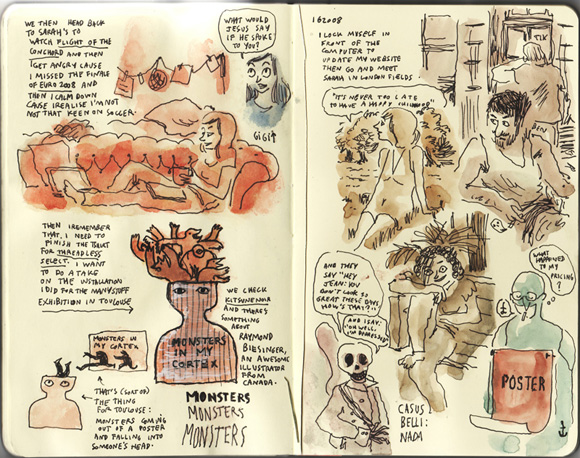 WE THEN HEAD BACK
TO SARAH'S TO
WATCH FLIGHT OF THE
CONCHORD AND THEN
I GET ANGRY CAUSE
I MISSED THE FINALE
OF EURO 2008 AND
THEN I CALM DOWN
CAUSE I REALISE I'M NOT
NOT THAT KEEN ON SOCCER.
WHAT WOULD
JESUS SAY
IF HE SPOKE
TO YOU?
GIGI
THEN I REMEMBER
THAT, I NEED TO
FINISH THE TSHIRT
FOR THREADLESS
SELECT. I WANT
TO DO A TAKE
ON THE INSTALLATION
I DID FOR THE MANYSTUFF
EXHIBITION IN TOULOUSE
MONSTERS IN
MY CORTEX
MONSTERS
IN MY
CORTEX
WE CHECK
KITSUNENOIR
AND THERE'S
SOMETHING
ABOUT
RAYMOND
BIESINGER,
AN AWESOME
ILLUSTRATOR
FROM
CANADA.
THAT'S (SORT OF)
THE THING
FOR TOULOUSE:
MONSTERS COMING
OUT OF A POSTER
AND FALLING INTO
SOMEONE'S HEAD.
MONSTERS
MONSTERS
MONSTERS
162008
I LOCK MYSELF IN
FRONT OF THE
COMPUTER TO
UPDATE MY WEBSITE
THEN GO AND MEET
SARAH IN LONDON FIELDS
"IT'S NEVER TOO LATE
TO HAVE A HAPPY CHILDHOOD"
BEN
AND THEY
SAY "HEY
JEAN! YOU
DON'T LOOK SO
GREAT THESE DAYS
HOW'S THAT?"
AND I SAY:
"OH WELL,
I'M DEPRESSED"
WHAT
HAPPENED
TO MY
PRICING?
£
POSTER
CASUS
BELLI:
NADA